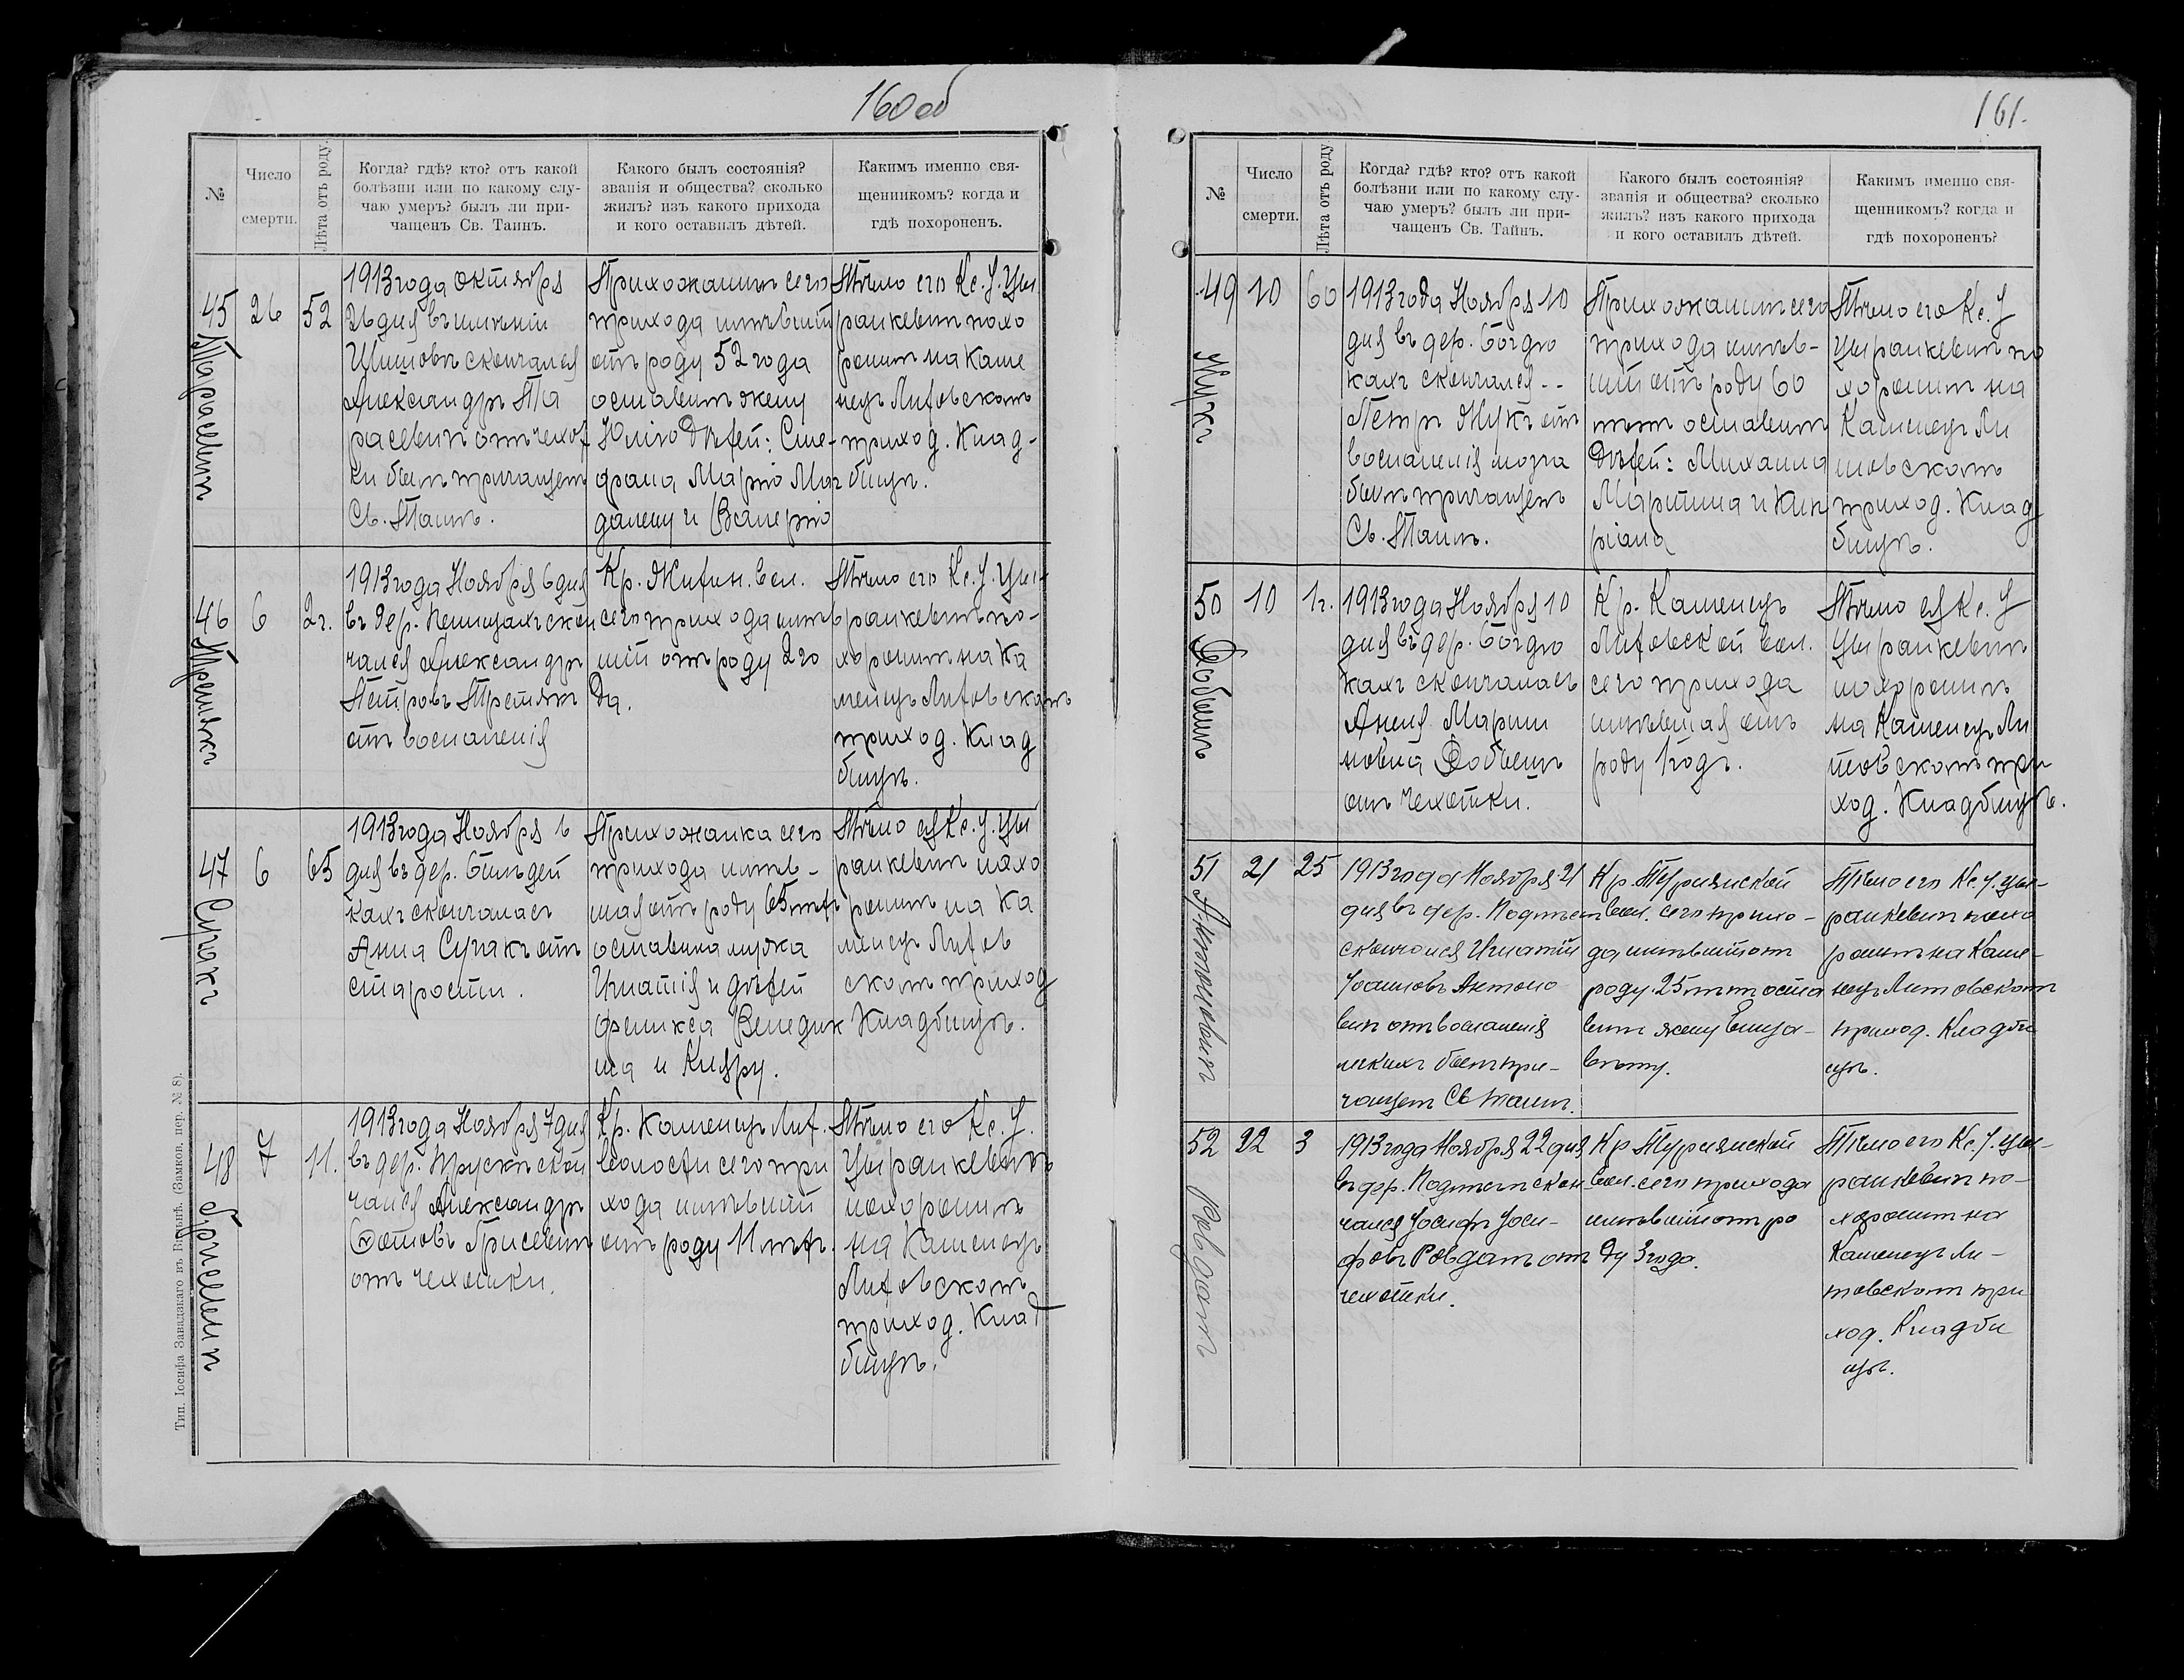 160 об
№
Число
смерти.
Лѣта отъ роду.
Когда? гдѣ? кто? отъ какой
болѣзни или по какому слу-
чаю умеръ? былъ ли при-
чащенъ Св. Таинъ.
Какого былъ состоянія?
званія и общества? сколько
жилъ? изъ какого прихода
и кого оставилъ дѣтей.
Какимъ именно свя-
щенникомъ? когда и
гдѣ похороненъ.
45
Тарасевич
26
52
1913 года октября
26 дня въ имѣніи
скончался
Александръ Та
расевичъ отъ чехот
ки былъ причащенъ
Св. Таинъ.
Прихожанинъ сего
прихода имѣвшій
отъ роду 52 года
оставилъ жену
Юлію дѣтей: Сте-
фана Марію Маг
далену и Валерію
Тѣло его Кс. У. Цы
ранкевичъ похо
ронилъ на Каме
нецъ Литовскомъ
приход. Клад-
бищѣ.
46
Третьякъ
6
2 г.
1913 года Ноября 6 дня
въ дер. скон
чался Александръ
Петровъ Третьякъ
отъ воспаленія
Кр. вол.
сего прихода имѣв
шій отъ роду 2 го
да.
Тѣло его Кс. У. Цы-
ранкевичъ по-
хоронилъ на Ка
менецъ Литовскомъ
приход. Клад
бищѣ.
47
Супакъ
6
65
1913 года Ноября 6
дня въ дер.
кахъ скончалась
Анна отъ
старости.
Прихожанка сего
прихода имѣв-
шая отъ роду 65 лѣтъ
оставила мужа
Игнатія и дѣтей
Феликса Венедик
та и Киару.
Тѣло ея Кс. У. Цы
ранкевичъ похо
ронилъ на Ка
менецъ Литов
скомъ приход
Кладбищѣ.
48
Грисевич
7
11.
1913 года Ноября 7 дня
въ дер. Прускѣ скон
чался Александръ
Фотовъ Грисевичъ
отъ чехотки.
Кр. Каменецъ Лит.
волости сего при
хода имѣвшій
отъ роду 11 лѣтъ.
Тѣло его Кс. У.
Цыранкевичъ
похоронилъ
на Каменецъ
Литовскомъ
приход. Клад
бищѣ.
Тип. Іосифа Завадзкаго въ Вильнѣ. (Замков. пер. № 8).
161.
№
Число
смерти.
Лѣта отъ роду
Когда? гдѣ? кто? отъ какой
болѣзни или по какому слу-
чаю умеръ? былъ ли при-
чащенъ Св. Тайнъ.
Какого былъ состоянія?
званія и общества? сколько
жилъ? изъ какого прихода
и кого оставилъ дѣтей.
Какимъ именно свя-
щенникомъ? когда и
гдѣ похороненъ?
49
Жукъ
10
60
1913 года Ноября 10
дня въ дер. Богдю
кахъ скончался --
Петръ Жукъ отъ
воспаленія мозга
былъ причащенъ
Св. Таинъ.
Прихожанинъ сего
прихода имѣв-
шій отъ роду 60
лѣтъ оставилъ
дѣтей: Михаила
Мартина и Кип
ріана
Тѣло его Кс. У
Цыранкевичъ по
хоронилъ на
Каменецъ Ли
товскомъ
приход. Клад
бищѣ.
50
10
1 г.
1913 года Ноября 10
дня въ дер. Богдю
кахъ скончалась
Марти
новна
отъ чехотки.
Кр. Каменецъ
Литовской вол.
сего прихода
имѣвшая отъ
роду 1 годъ.
Тѣло ея Кс. У
Цыранкевичъ
похоронилъ
на Каменецъ Ли
товскомъ при
ход. Кладбищѣ.
51
Антоневич
21
25
1913 года Ноября 21
дня въ дер.
скончался Игнатій
Іоанновъ Антоно
вичъ отъ воспаленія
легкихъ былъ при-
чащенъ Св Таинъ.
Кр. Турнянской
вол. сего прихо-
да имѣвшій отъ
роду 25 лѣтъ оста
вилъ жену Елиза-
вету.
Тѣло его Кс. У. Цы-
ранкевичъ похо
ронилъ на Каме-
нецъ Литовскомъ
приход. Кладби
щѣ.
52
Ровдачъ
22
3
1913 года Ноября 22 дня
въ дер. скон-
чался Іосифъ Іоси-
фовъ отъ
чехотки.
Кр Турнянской
вол. сего прихода
имѣвшій отъ ро
ду 3 года.
Тѣло его Кс. У. Цы-
ранкевичъ по-
хоронилъ на
Каменецъ Ли-
товскомъ при
ход. Кладби
щѣ.